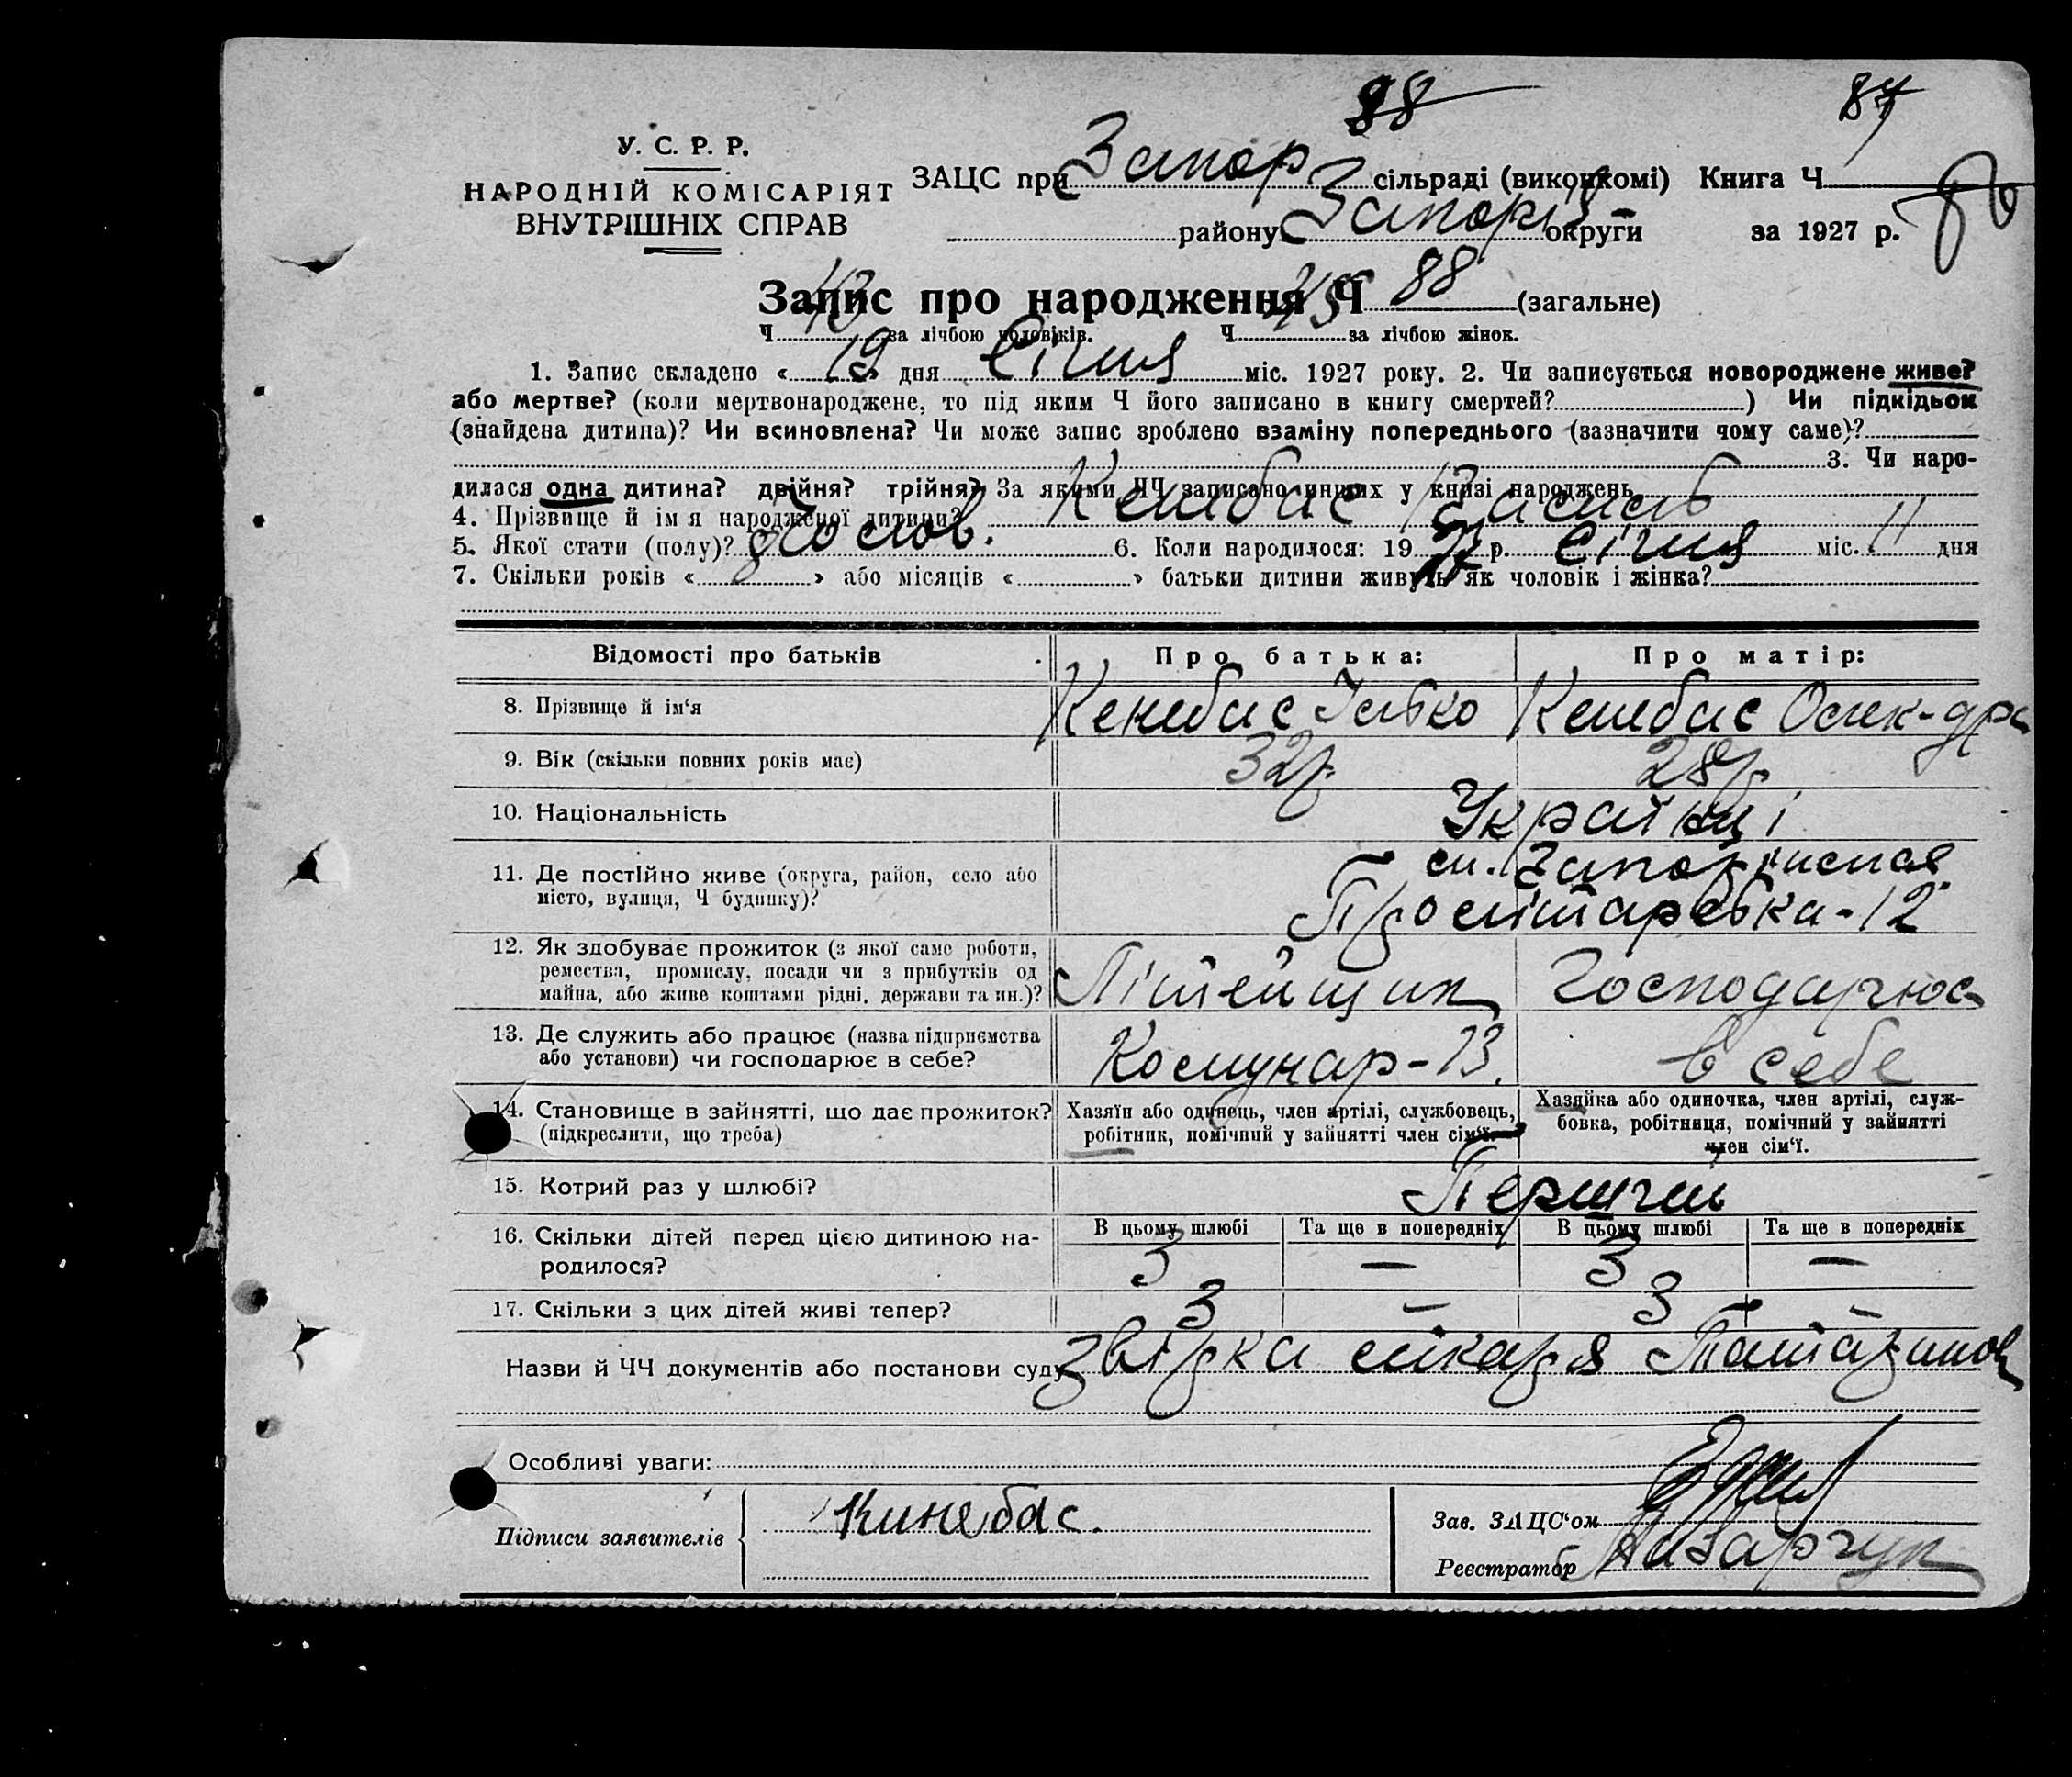 88 87
У. С. Р. Р.
НАРОДНІЙ КОМІСАРІЯТ
ВНУТРІШНІХ СПРАВ
ЗАЦС при Запор сільраді (виконкомі) Книга Ч.
району Запоріз округи за 1927 р. 86
Запис про народження Ч 88 (загальне)
Ч за лічбою чоловіків. Ч 45 за лічбою жінок.
1. Запис складено « 19 » дня Січня міс. 1927 року. 2. Чи записується новороджене живе?
або мертве? (коли мертвонароджене, то під яким Ч його записано в книгу смертей? ) Чи підкідьок
(знайдена дитина)? Чи всиновлена? Чи може запис зроблено взаміну попереднього (зазначити чому саме)?
3. Чи наро-
дилася одна дитина? двійня? трійня? За якими ЧЧ записано инших у книзі народжень
4. Прізвище й ім я народженої дитини? Кенебас Василь
5. Якої стати (полу)? чолов. 6. Коли народилося: 19 27 р. Січня міс. 11 дня
7. Скільки років « » або місяців « » батьки дитини живуть як чоловік і жінка?
Відомості про батьків Про батька: Про матір:
8. Прізвище й ім‘я Кенебас Кенебас Олек-дра
9. Вік (скільки повних років має) 32р. 28р.
10. Національність Українці
11. Де постійно живе (округа, район, село або
місто, вулиця, Ч будинку)? ст. Запоріжжя
Пролітарська-12
12. Як здобуває прожиток (з якої саме роботи,
ремества, промислу, посади чи з прибутків од
майна, або живе коштами рідні, держави та ин.)? Літейщик Господарює
13. Де служить або працює (назва підприємства
або установи) чи господарює в себе? Комунар-13. в себе
14. Становище в зайнятті, що дає прожиток?
(підкреслити, що треба)
Хазяїн або одинець, член артілі, службовець,
робітник, помічний у зайнятті член сім‘ї.
Хазяйка або одиночка, член артілі, служ-
бовка, робітниця, помічний у зайнятті
член сім‘ї.
15. Котрий раз у шлюбі? Перший
16. Скільки дітей перед цією дитиною на-
родилося?
В цьому шлюбі Та ще в попередніх В цьому шлюбі Та ще в попередніх
3 — 3 —
17. Скільки з цих дітей живі тепер? 3 — 3 —
Назви й ЧЧ документів або постанови суду звірка лікаря
Особливі уваги:
Підписи заявителів Кинебас.
Зав. ЗАЦС‘ом
Реєстратор Назарчук